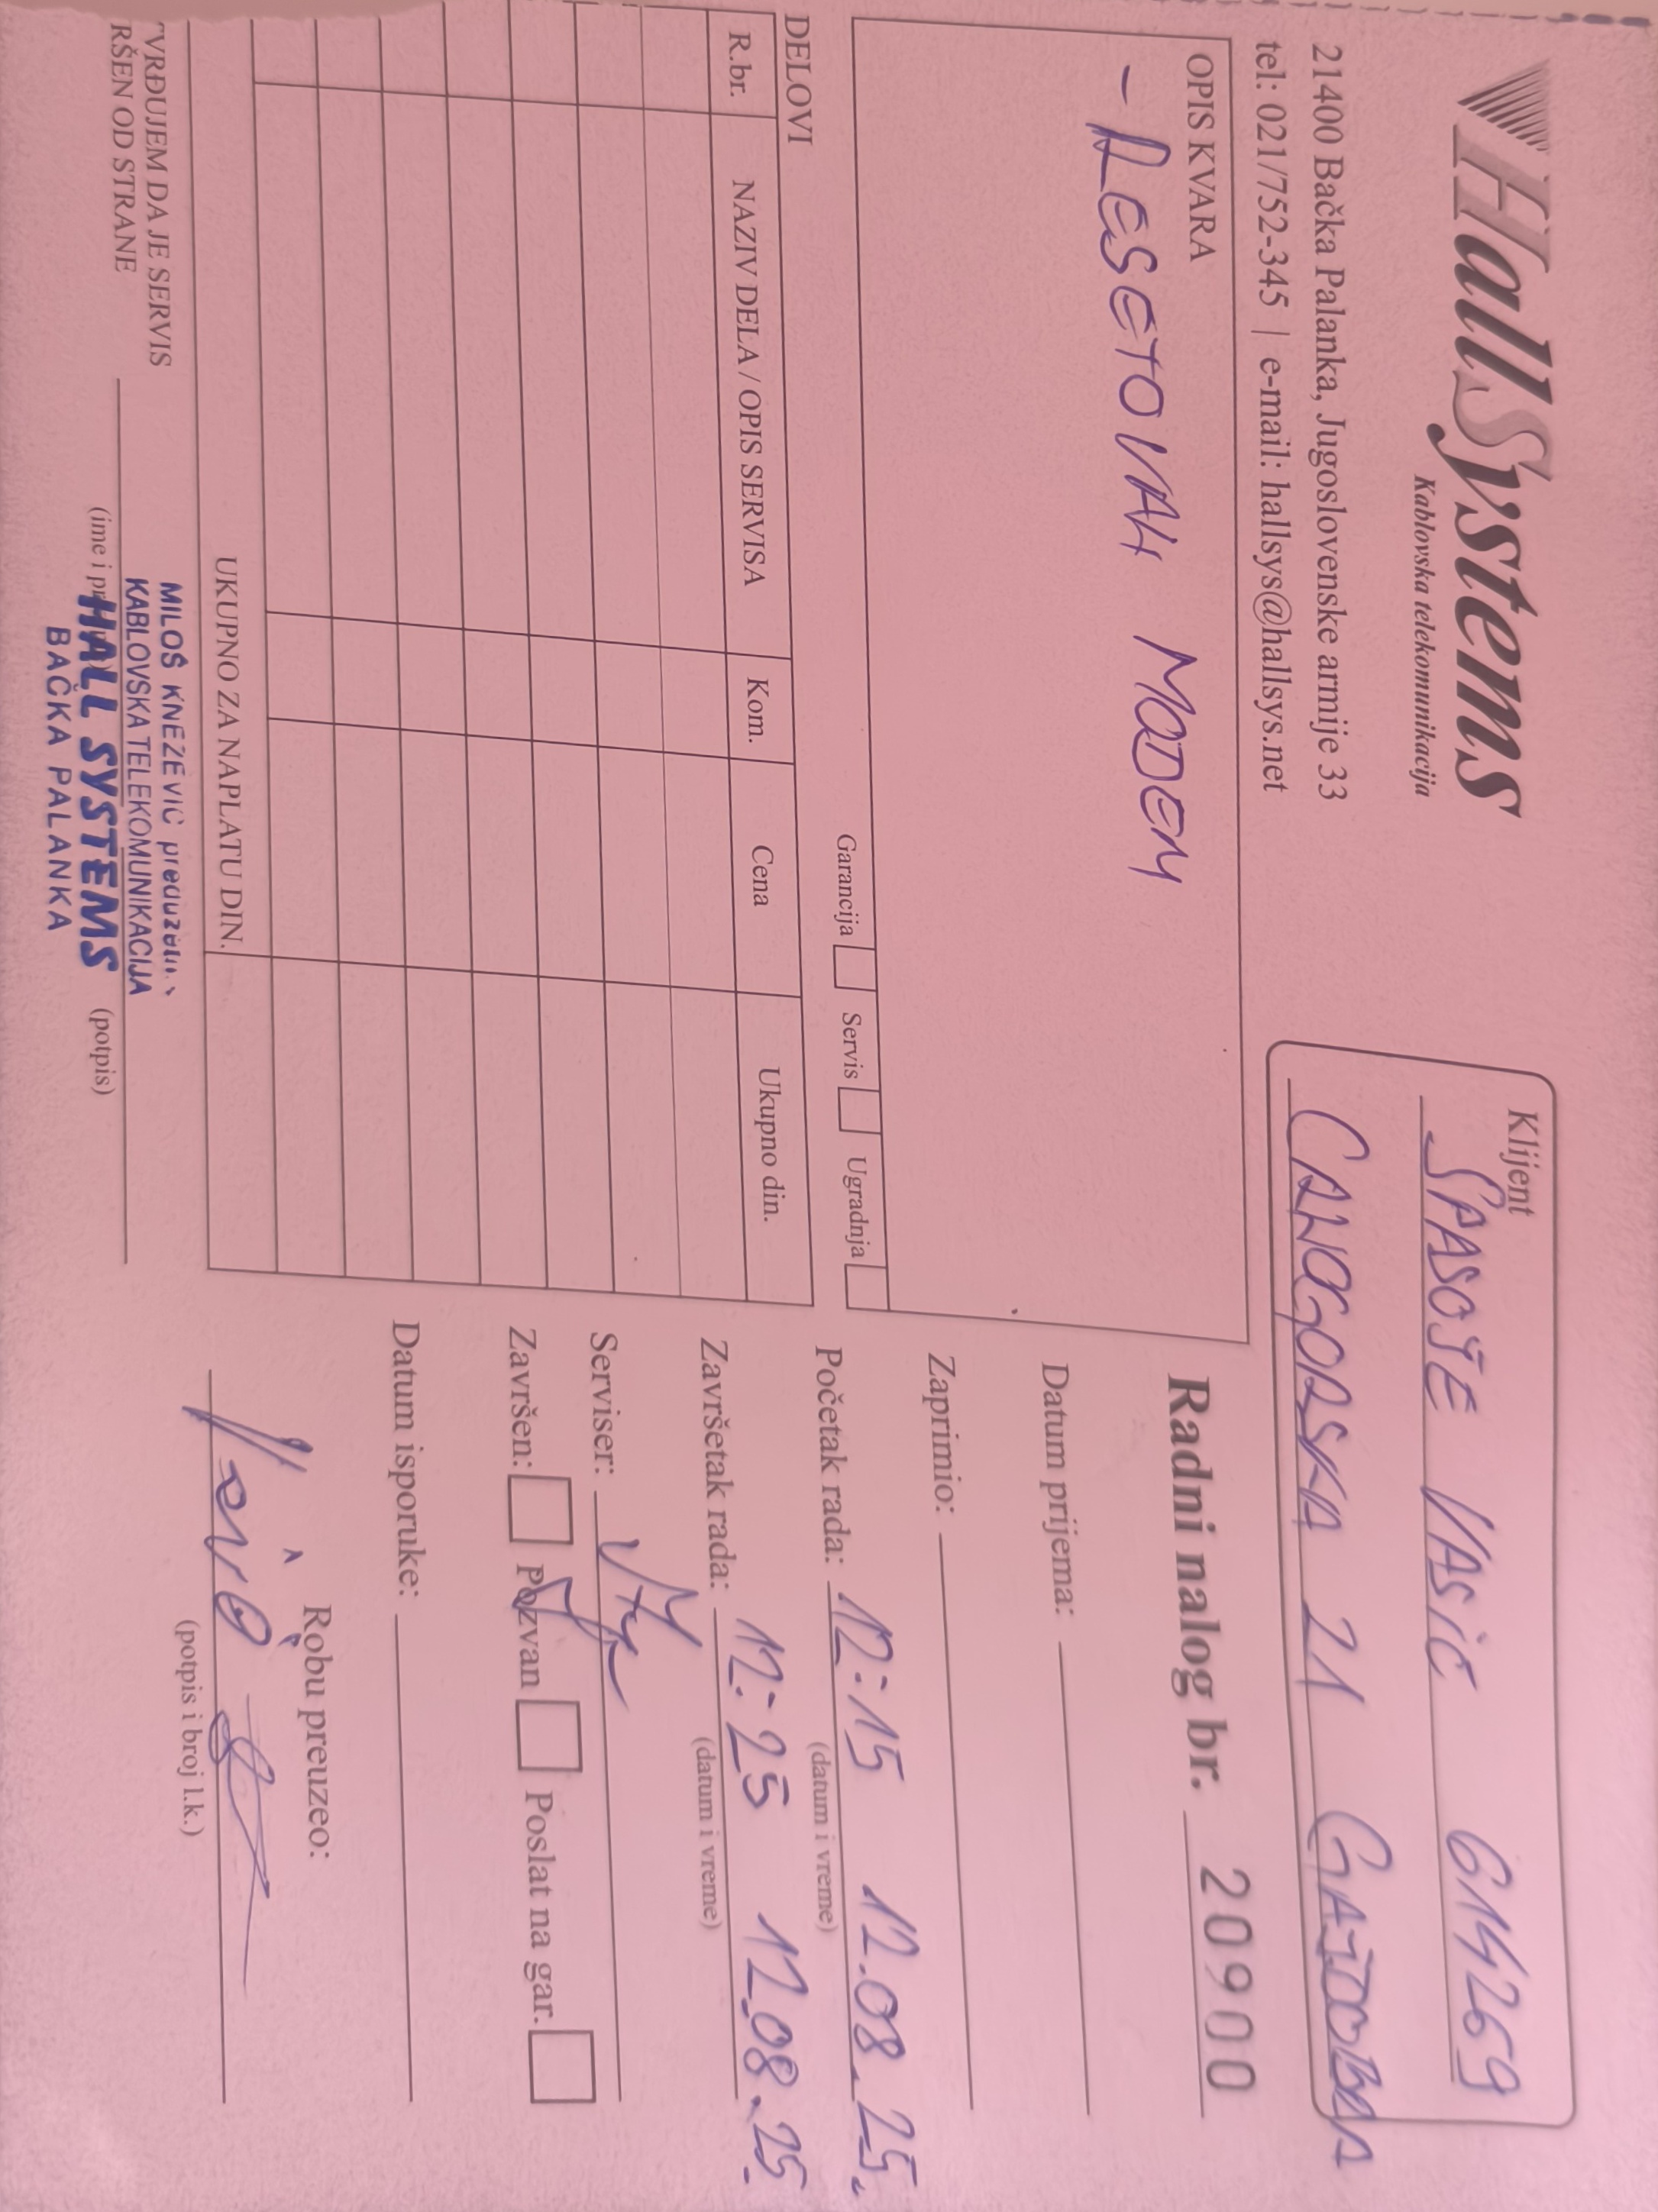 HallSystems
Kablovska telekomunikacija
21400 Bačka Palanka, Jugoslovenske armije 33
tel: 021/752-345 | e-mail: hallsys@hallsys.net
Klijent
SPASOJE VASIĆ 614269
CRNOGORSKA 21 GAJDOBRA
OPIS KVARA
- RESETOVAN MODEM
Garancija Servis Ugradnja
DELOVI
R.br. NAZIV DELA / OPIS SERVISA Kom. Cena Ukupno din.
UKUPNO ZA NAPLATU DIN.
VRĐUJEM DA JE SERVIS
RŠEN OD STRANE
(ime i pr
(potpis)
MILOŠ KNEŽEVIĆ
KABLOVSKA TELEKOMUNIKACIJA
HALL SYSTEMS
BAČKA PALANKA
Radni nalog br. 20900
Datum prijema:
Zaprimio:
Početak rada: 12:15 12.08.25.
(datum i vreme)
Završetak rada: 12:25 12.08.25.
(datum i vreme)
Serviser:
Završen: Pozvan Poslat na gar.
Datum isporuke:
Robu preuzeo:
(potpis i broj l.k.)